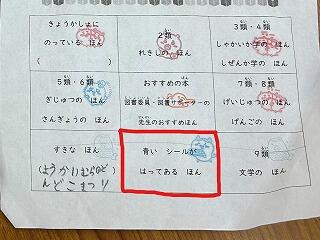 きょうかしょに
のっている ほん
(          )
2類
れきしの ほん
3類・4類
しゃかいか学の ほん
しぜんか学の ほん
5類・6類
ぎじゅつの ほん
さんぎょうの ほん
おすすめの本
図書委員・図書サポーターの
先生のおすすめほん
7類・8類
げいじゅつの ほん
げんごの ほん
すきな ほん
(ようかいむらのど
んどこまつり)
青い シールが
はってある ほん
9類
文学の ほん